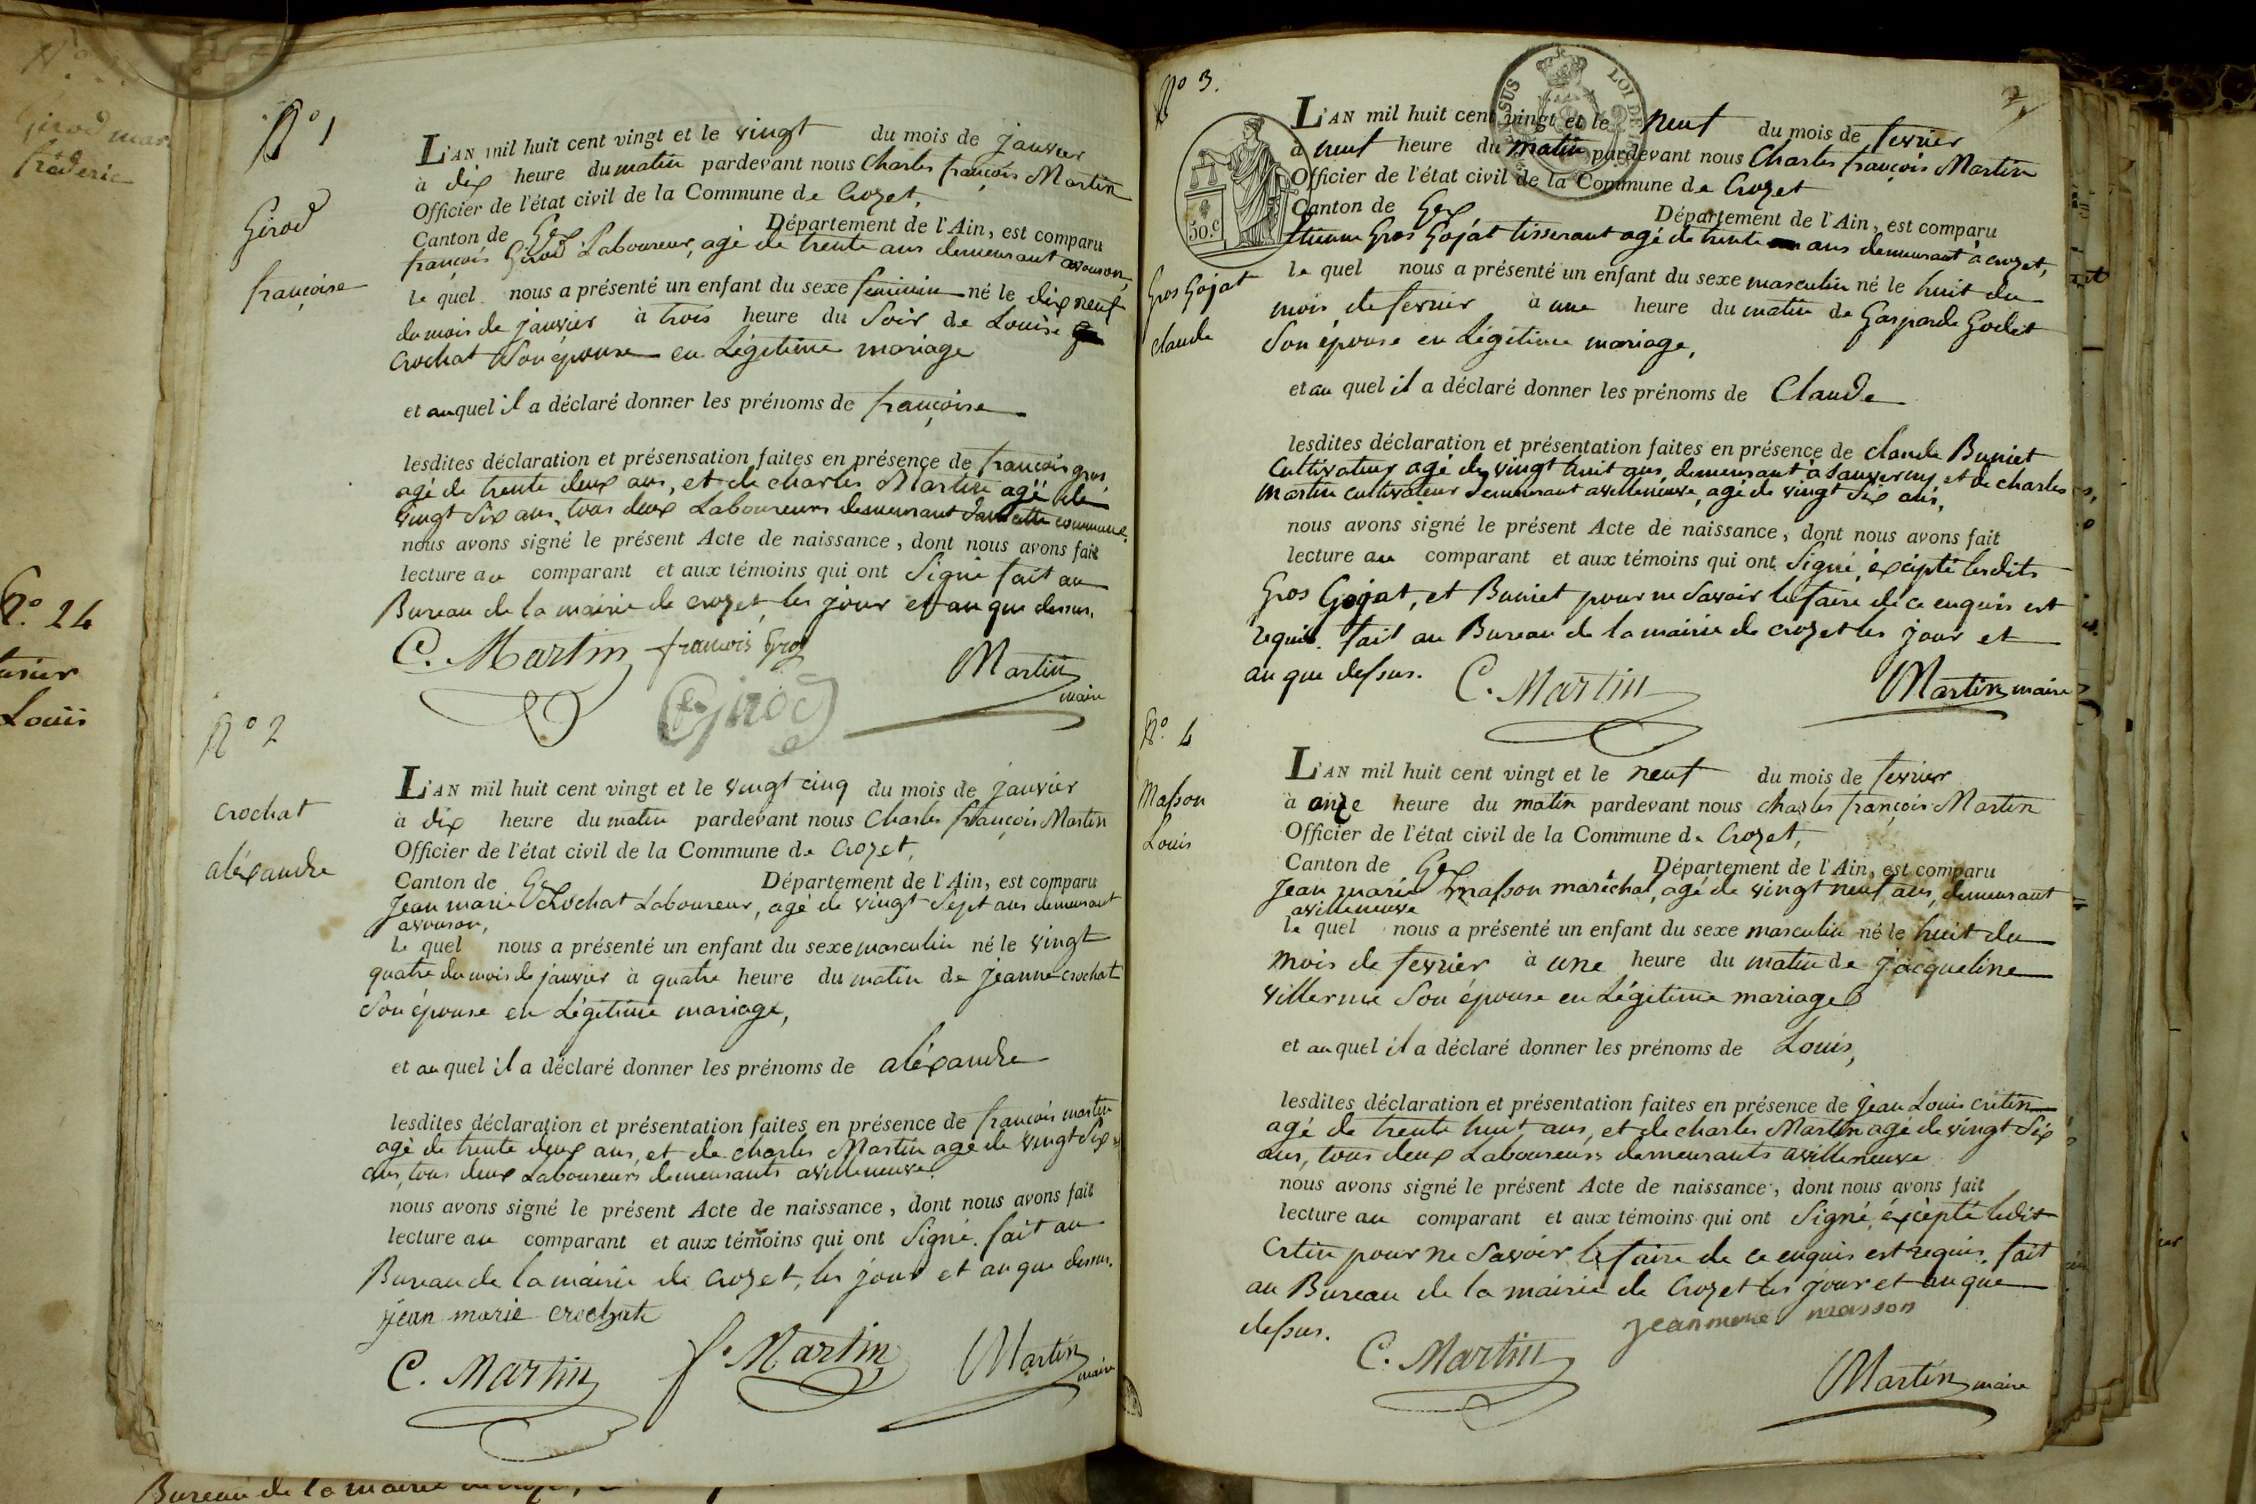 Girod mar
fréderic
N.° 24
Louis
N° 1
Girod
françoise
L'AN mil huit cent vingt et le vingt du mois de janvier
à dix heure du matin pardevant nous Charles françois Martin
Officier de l'état civil de la Commune de Crozet,
Canton de Gex Département de l'Ain, est comparu
françois Girod Laboureur, agé de trente ans demeurant avouson,
le quel nous a présenté un enfant du sexe feminin né le dix neuf
du mois de janvier à trois heure du Soir de Louise
Crochat Son épouse en Légitime mariage
et auquel il a déclaré donner les prénoms de françoise
lesdites déclaration et présensation faites en présence de françois gros
agé de trente deux ans, et de charles Martin agé de
vingt Six ans, tous deux Laboureurs demeurant dans cette commune.
nous avons signé le présent Acte de naissance, dont nous avons fait
lecture au comparant et aux témoins qui ont Signé fait au
Bureau de la mairie de crozet, les jour et an que dessus.
C. Martin françois Gros Martin
maire
Girod
N° 2
Crochat
aléxandre
L'AN mil huit cent vingt et le vingt cinq du mois de janvier
à dix heure du matin pardevant nous Charles françois Martin
Officier de l'état civil de la Commune de Crozet,
Canton de Gex Département de l'Ain, est comparu
Jean marie Crochat Laboureur, agé de vingt Sept ans demeurant
avouson,
le quel nous a présenté un enfant du sexe masculin né le vingt
quatre du mois de janvier à quatre heure du matin de jeanne crochat
Son épouse en Légitime mariage,
et auquel il a déclaré donner les prénoms de aléxandre
lesdites déclaration et présentation faites en présence de françois martin
agé de trente deux ans, et de charles Martin agé de vingt Six
ans, tous deux Laboureurs demeurants avilleneuve.
nous avons signé le présent Acte de naissance, dont nous avons fait
lecture au comparant et aux témoins qui ont Signé. fait au
Bureau de la mairie de Crozet, les jour et an que dessus.
jean marie crochate
C. Martin f. Martin Martin
maire
Bureau de la mairie
N° 3.
LOI DE
50. C
Gros Gojat
claude
L'AN mil huit cent vingt et le neuf du mois de fevrier
à neuf heure du matin pardevant nous Charles françois Martin
Officier de l'état civil de la Commune de Crozet
Canton de Gex Département de l'Ain, est comparu
Etienne Gros Gojat tisserant agé de trente ans demeurant à crozet,
le quel nous a présenté un enfant du sexe masculin né le huit du
mois de fevrier à une heure du matin de Gasparde Godet
Son épouse en Légitime mariage,
et au quel il a déclaré donner les prénoms de Claude
lesdites déclaration et présentation faites en présence de claude Buniet
Cultivateur agé de vingt huit ans, demeurant à Sauverny et de charles
Martin cultivateur demeurant avilleneuve, agé de vingt Six ans,
nous avons signé le présent Acte de naissance, dont nous avons fait
lecture au comparant et aux témoins qui ont Signé, éxcépté lesdits
Gros Gojat, et Buniet pour ne Savoir le faire de ce enquis est
requis. fait au Bureau de la mairie de crozet les jour et
an que dessus. C. Martin Martin maire
N.° 4
Masson
Louis
L'AN mil huit cent vingt et le neuf du mois de fevrier
à onze heure du matin pardevant nous charles françois Martin
Officier de l'état civil de la Commune de Crozet,
Canton de Gex Département de l'Ain, est comparu
Jean marie masson maréchal, agé de vingt neuf ans, demeurant
avilleneuve
le quel nous a présenté un enfant du sexe masculin né le huit du
mois de fevrier à une heure du matin de jacqueline
villerme Son épouse en Légitime mariage
et au quel il a déclaré donner les prénoms de Louis,
lesdites déclaration et présentation faites en présence de jean Louis critin
agé de trente huit ans, et de charles Martin agé de vingt Six
ans, tous deux Laboureurs demeurants avilleneuve
nous avons signé le présent Acte de naissance, dont nous avons fait
lecture au comparant et aux témoins qui ont Signé, éxcépté ledit
Critin pour ne Savoir le faire de ce enquis est requis. fait
au Bureau de la mairie de Crozet les jour et an que
dessus. jean marie masson
C. Martin Martin maire